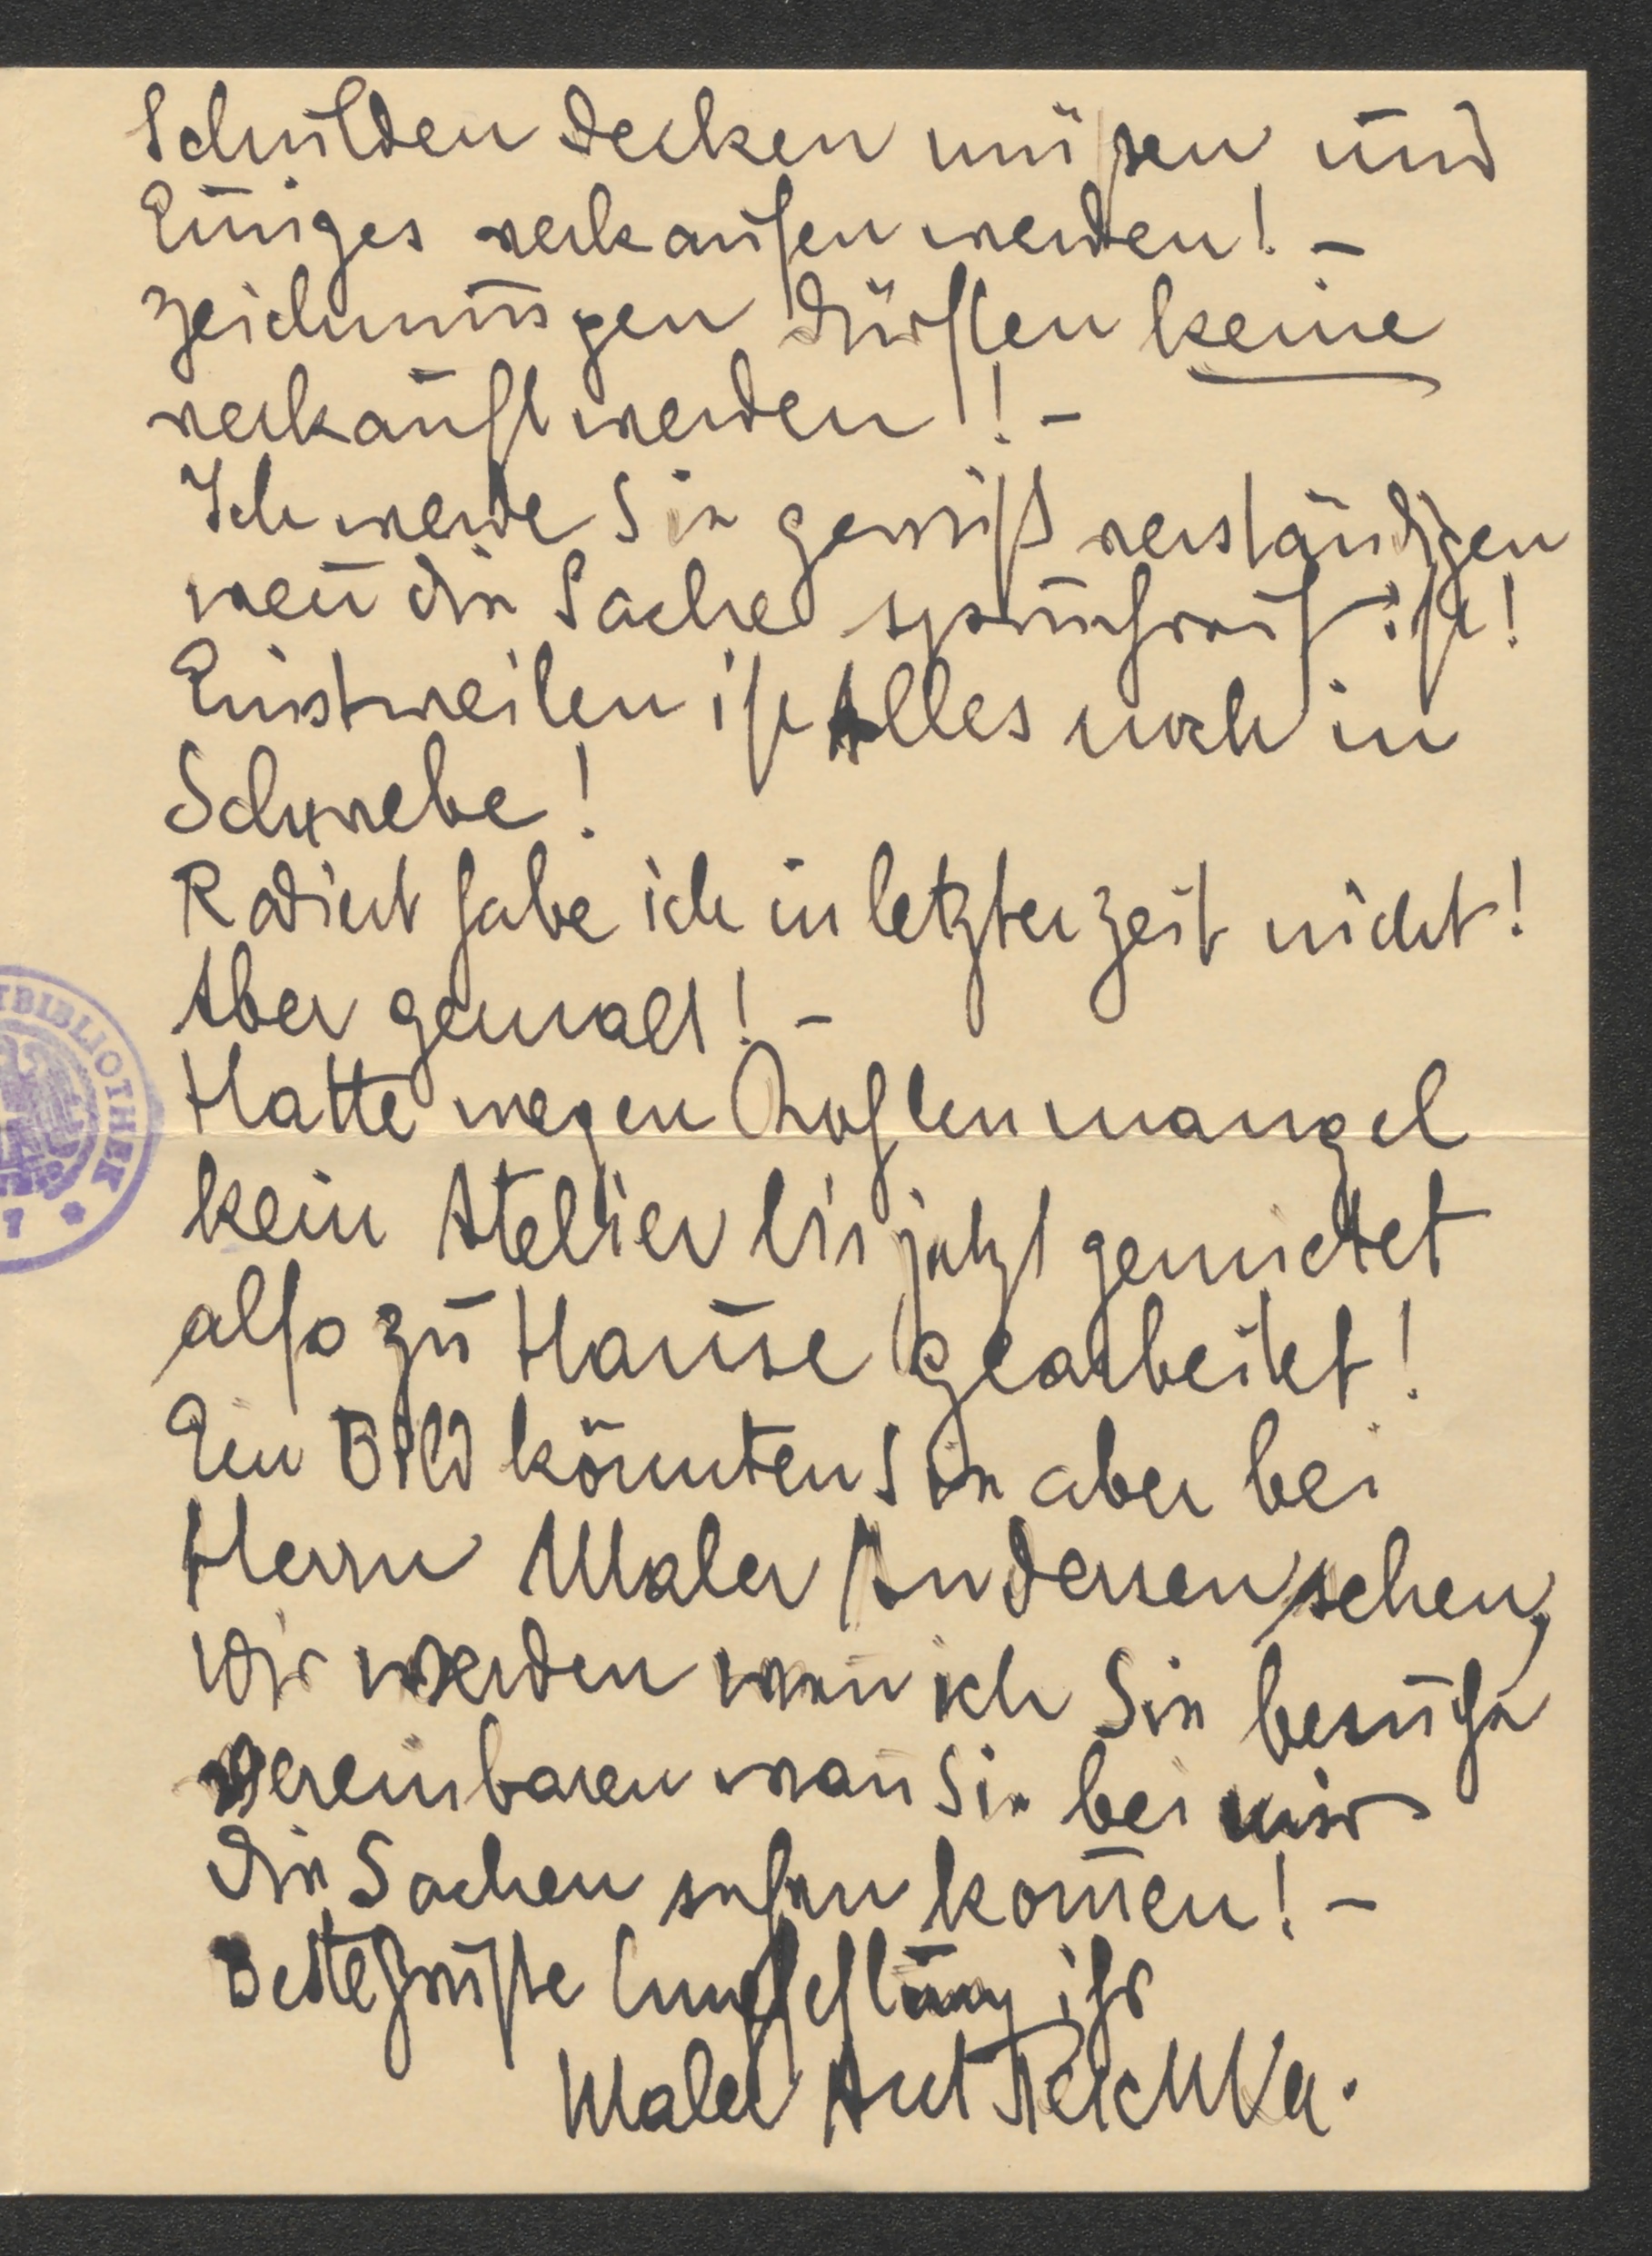 Schulden decken müssen und
Einiges verkaufen werden! –
Zeichnungen dürften keine
verkauft werden!! –
Ich werde Sie gewiß verständigen
weñ die Sache spruchreif ist!
Einstweilen ist Alles noch in
Schwebe!
Radiert habe ich in letzter Zeit nicht!
Aber gemalt! –
Hatte wegen Kohlenmangel
kein Atelier bis jetzt gemietet
also zu Hause gearbeitet!
Ein Bild könnten Sie aber bei
Herrn Maler Andersen sehen,
Wir werden weñ ich Sie besuche
vereinbaren wañ Sie bei mir
die Sachen sehen kom̄en! –
Beste Grüße Empfehlung ihr
Maler
TBIBLIOTHEK
7 *